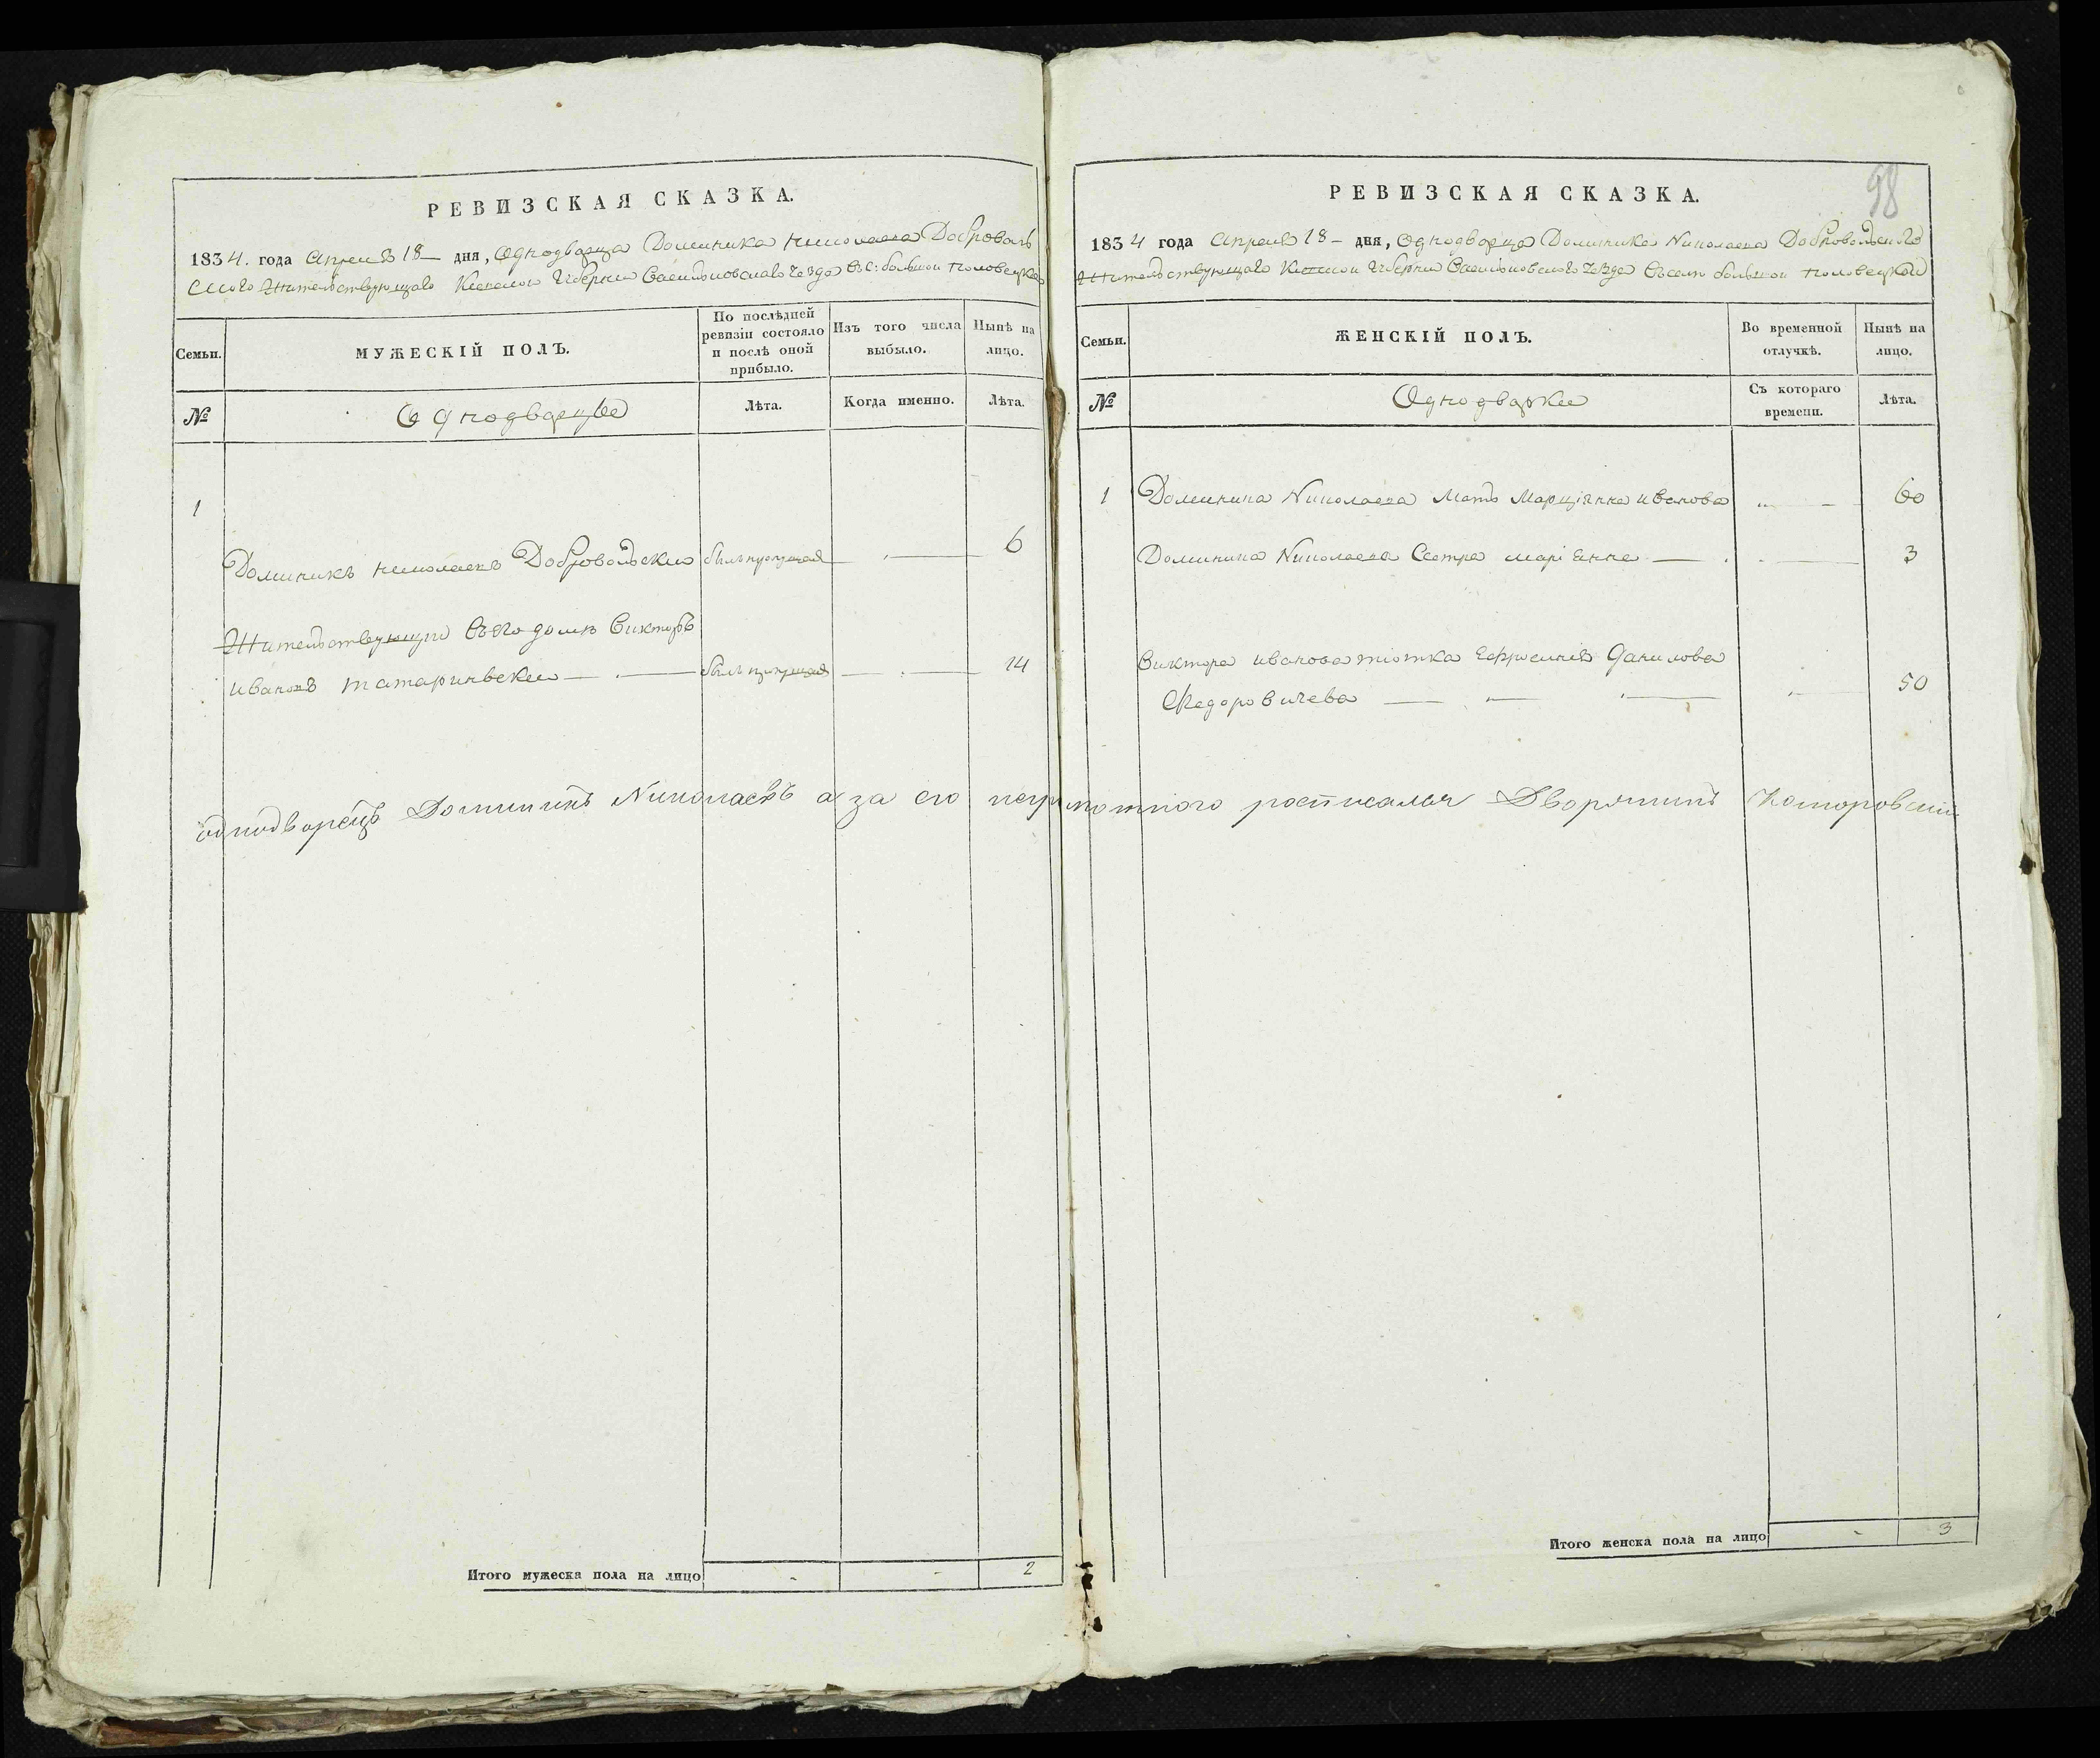 РЕВИЗСКАЯ СКАЗКА.
1834. года Апреля 18 — дня, Однодворца Доминика Николаева Доброволь
ского Жительствующаго Киевской Губернии Васильковскаго уезда въ с: большой Половецкой
Семьи.
МУЖЕСКІЙ ПОЛЪ.
По послѣдней ревизіи состояло и послѣ оной прибыло.
Изъ того числа выбыло.
Нынѣ на лицо.
№
Однодворцы
Лѣта.
Когда именно.
Лѣта.
1
Доминикъ Николаевъ Добровольски былъ пропущенъ — 6
Жительствующий въ его доме Викторъ
Ивановъ Татариновски — былъ пропущенъ — 14
Итого мужеска пола на лицо - - 2
98
РЕВИЗСКАЯ СКАЗКА.
1834 года Апреля 18 — дня, Однодворца Доминика Николаева Добровольского
Жительствующаго Киевской Губернии Васильковского уезда въ селе большой Половецкой
Семьи.
ЖЕНСКІЙ ПОЛЪ.
Во временной отлучкѣ.
Нынѣ на лицо.
№
Однодворки
Съ котораго времени.
Лѣта.
1 Доминика Николаева Мать Марціянна Иванова „ — 60
Доминика Николаева Сестра Маріянна — 3
Виктора Иванова тіотка Ефросинія Данилова
Федоровичева — — — 50
однодворецъ Доминикъ Николаевъ а за его неграмотного росписался Дворянинъ Коморовский
Итого женска пола на лицо - 3